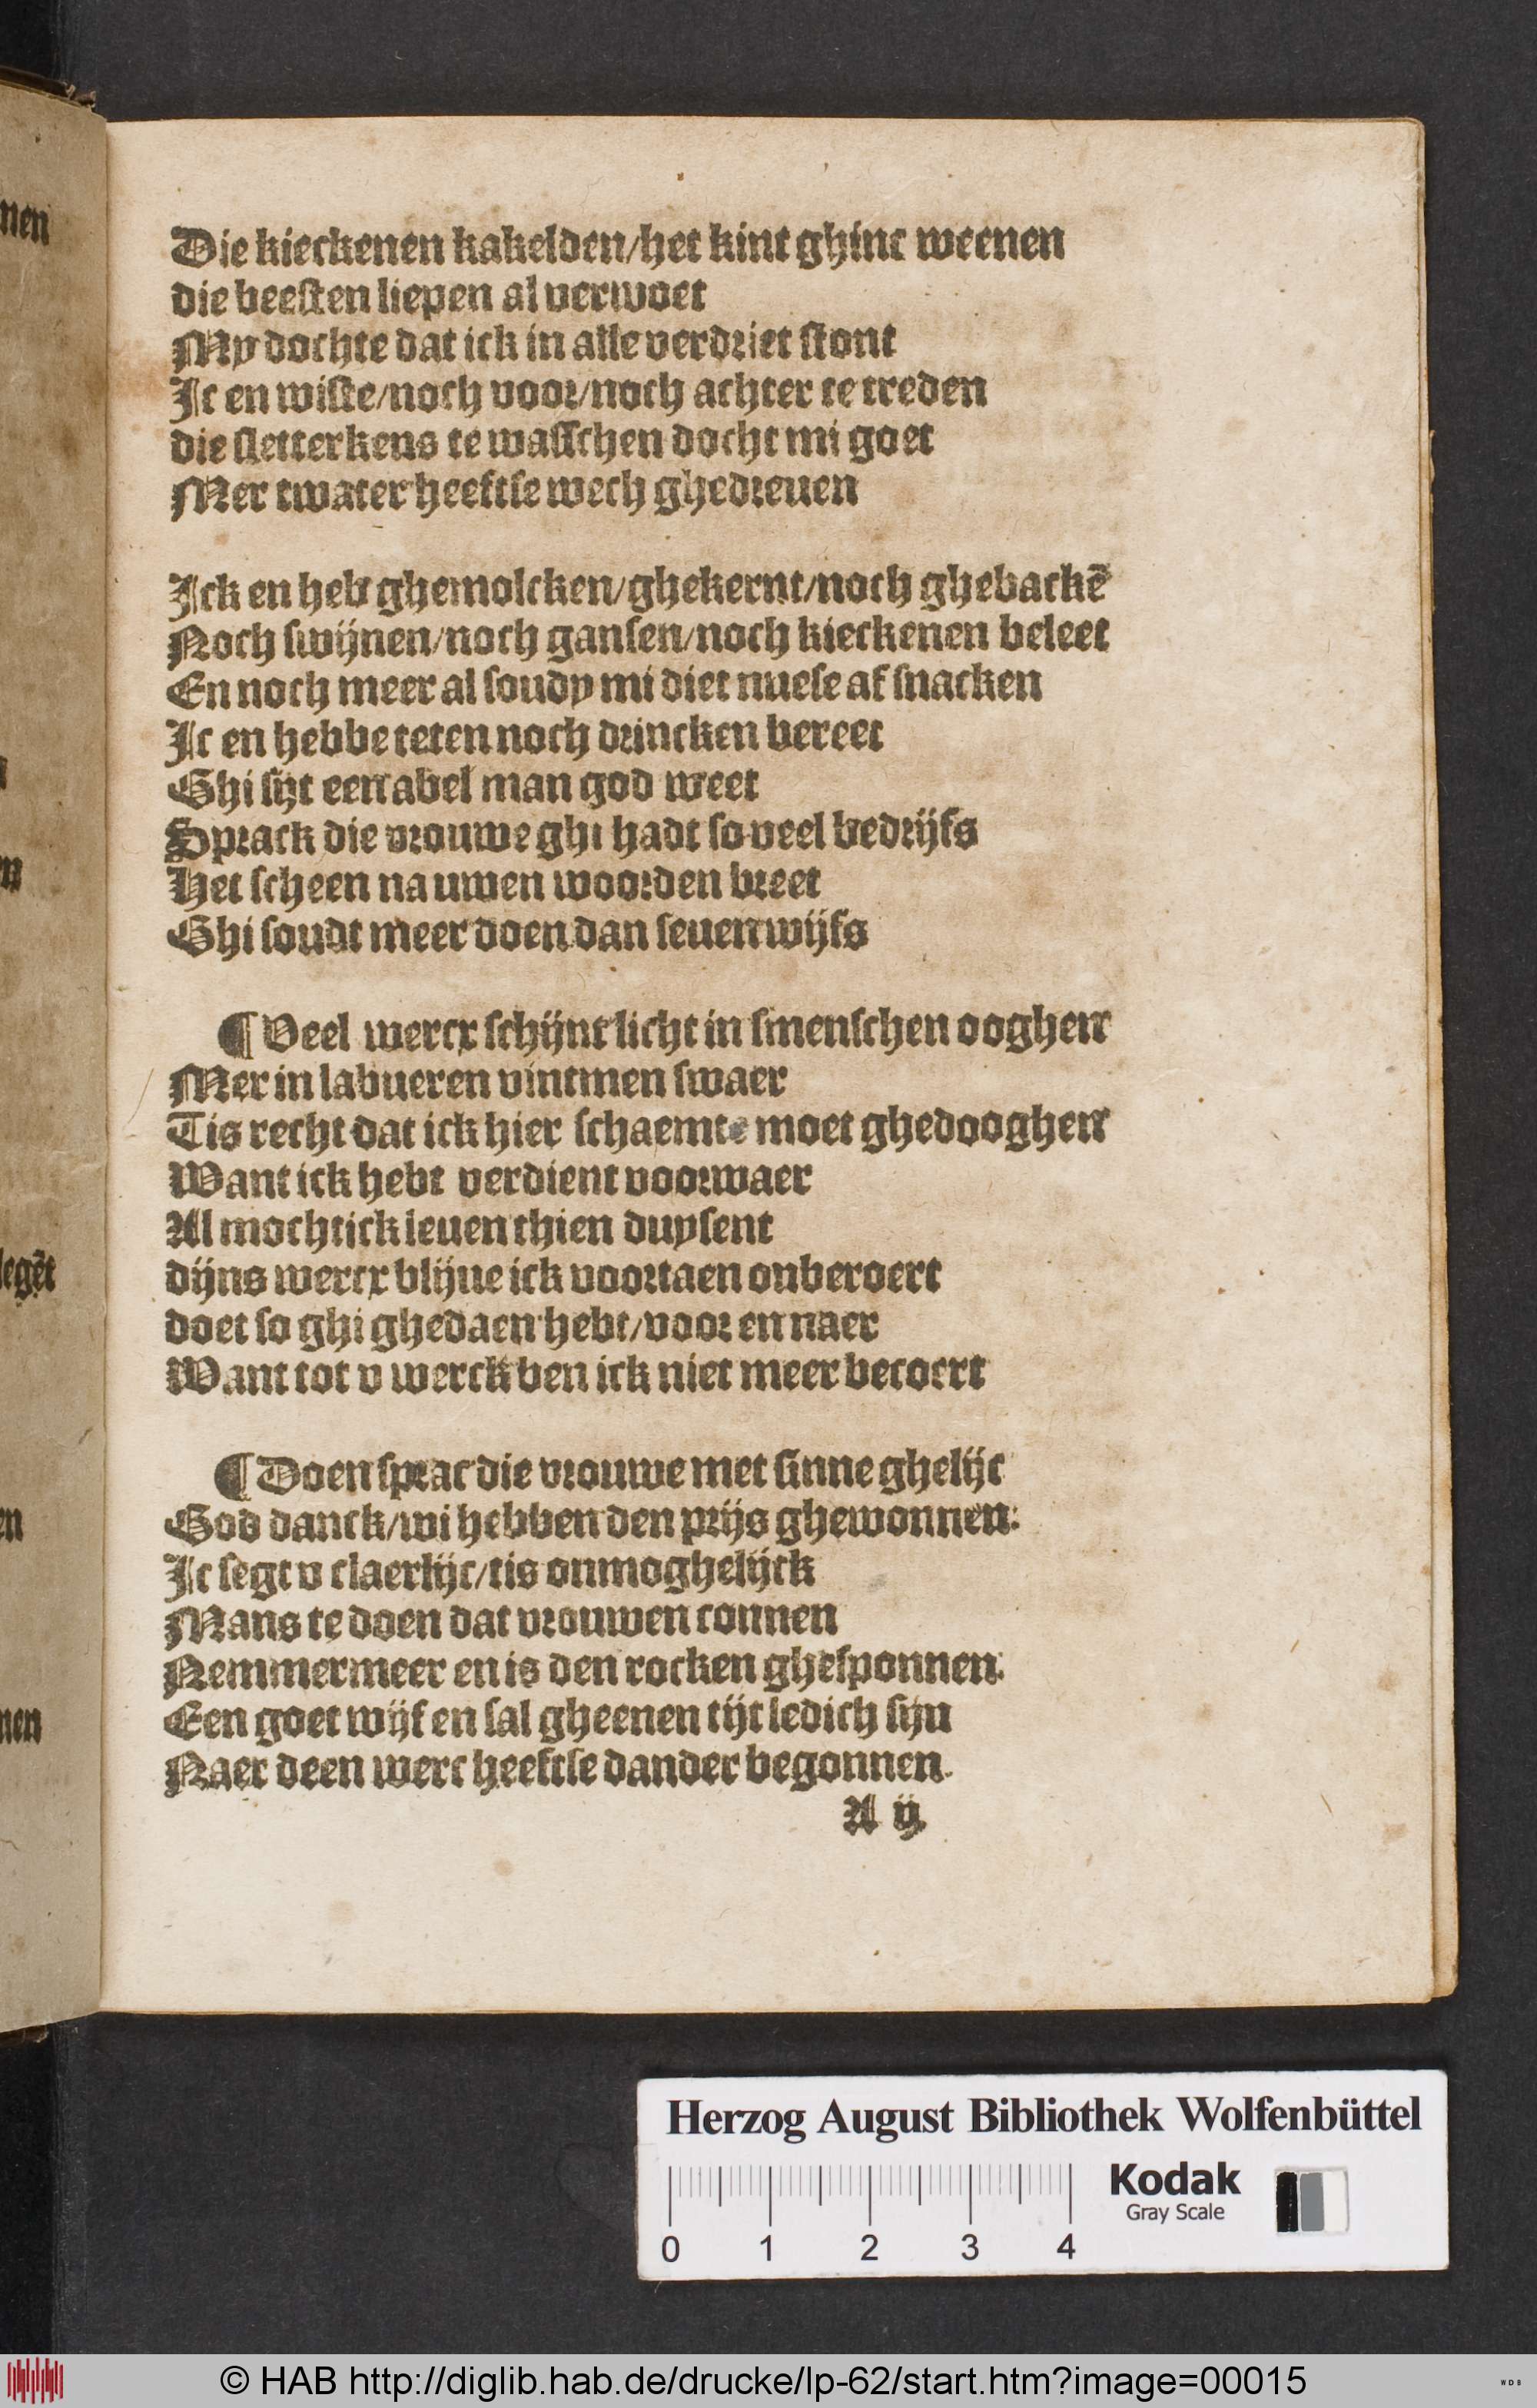 Die kieckenen kakelden/het kint ghinc weenen
die beeſten liepen al verwoet
My dochte dat ick in alle verdriet ſtont
Jc en wiſte/noch voor/noch achter te treden
die ſletterkens te waſſchen docht mi goet
Mer twater heeftſe wech ghedreuen
Jck en heb ghemolcken/ghekernt/noch ghebackē
Noch ſwijnen/noch ganſen/noch kieckenen beleet
En noch meer al ſoudy mi diet nueſe af ſnacken
Jc en hebbe teten noch drincken bereet
Ghi ſijt een abel man god weet
Sprack die vrouwe ghi hadt ſo veel bedrijfs
Het ſcheen na uwen woorden breet
Ghi ſoudt meer doen dan ſeuen wijfs
¶ Veel wercx ſchijnt licht in ſmenſchen ooghen
Mer in labueren vintmen ſwaer
Tis recht dat ick hier ſchaemte moet ghedooghen
Want ick hebt verdient voorwaer
Al mochtick leuen thien duyſent
dijns wercx blijue ick voortaen onberoert
doet ſo ghi ghedaen hebt/voor en naer
Want tot v werck ben ick niet meer becoert
¶ Doen ſprac die vrouwe met ſinne ghelijc
God danck/wi hebben den prijs ghewonnen:
Jc ſegt v claerlijc/tis onmoghelijck
Mans te doen dat vrouwen connen
Nemmermeer en is den rocken gheſponnen:
Een goet wijf en ſal gheenen tijt ledich ſijn
Naer deen werc heeftſe dander begonnen.
A ij
nen
legēt
en
nen
Herzog August Bibliothek Wolfenbüttel
Kodak
Gray Scale
0 1 2 3 4
© HAB http://diglib.hab.de/drucke/lp-62/start.htm?image=00015
WDB